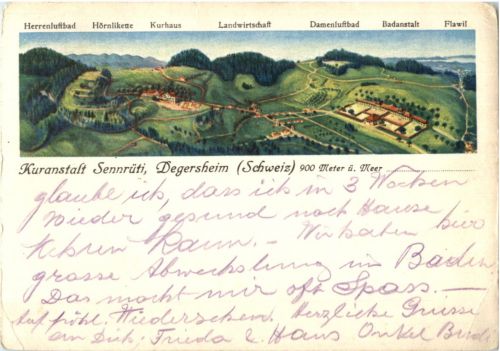 Herrenluftbad Hörnlikette Kurhaus Landwirtschaft Damenluftbad Badanstalt Flawil
Kuranstalt Sennrüti, Degersheim (Schweiz) 900 Meter ü. Meer
glaube ich, dass ich in 3 Wochen
wieder gesund nach Hause
kehren kann. – Wir haben hier
grosse Abwechslung im Baden
Das macht mir oft Spass. –
Auf fröhl. Wiedersehen. Herzliche Grüsse
an Dich, Frieda & Hans Onkel